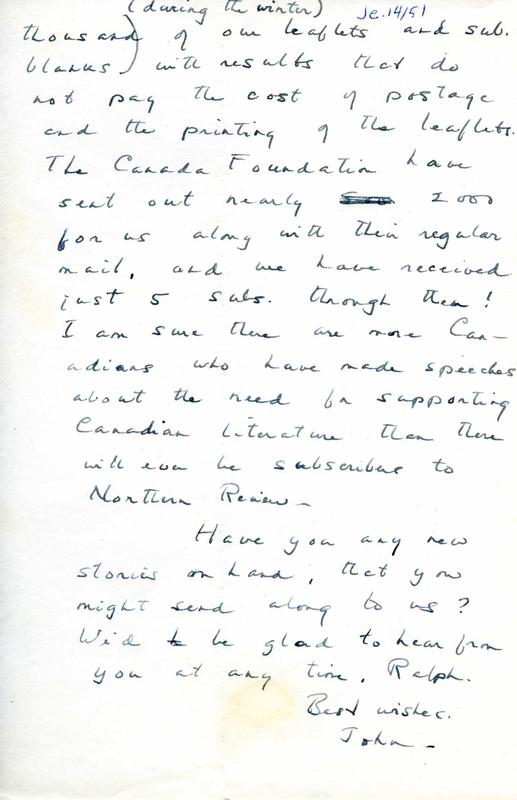 (during the winter) Je. 14/51
thousand) of our leaflets and sub.
blanks) with results that do
not pay the cost of postage
and the printing of the leaflets.
The Canada Foundation have
sent out nearly 2000
for us along with their regular
mail, and we have received
just 5 subs. through them!
I am sure there are more Can-
adians who have made speeches
about the need for supporting
Canadian literature than there
will ever be subscribers to
Northern Review —
Have you any new
stories on hand, that you
might send along to us?
We'd be glad to hear from
you at any time, Ralph.
Best wishes.
John —